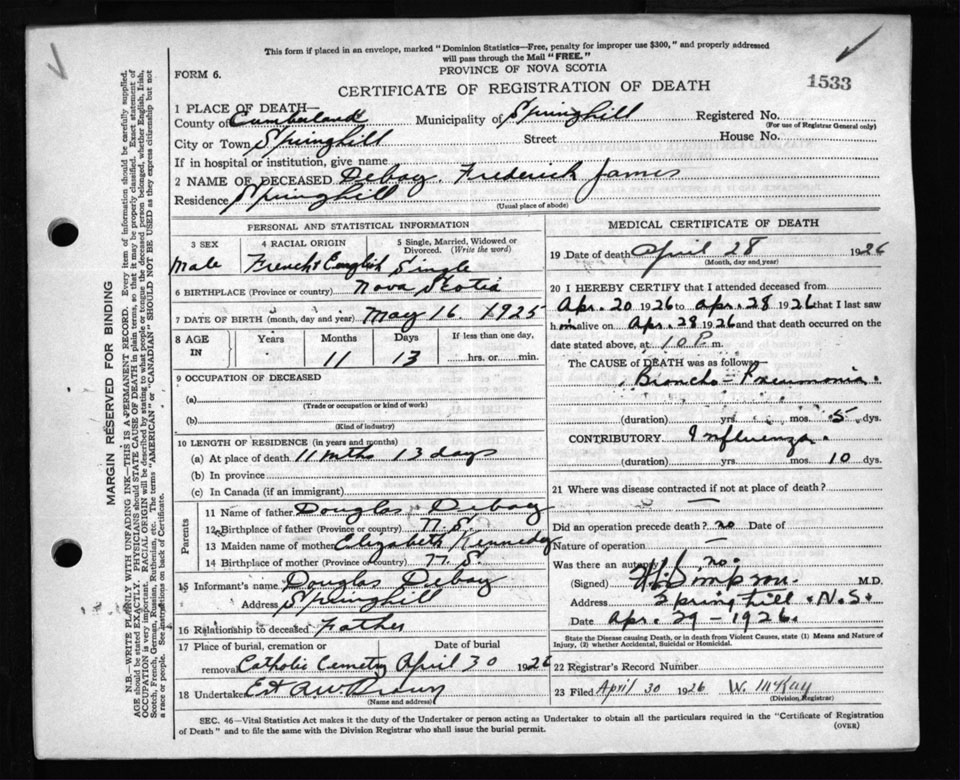 This form if placed in an envelope, marked "Dominion Statistics—Free, penalty for improper use $300," and properly addressed
will pass through the Mail "FREE."
PROVINCE OF NOVA SCOTIA
FORM 6.
CERTIFICATE OF REGISTRATION OF DEATH
1533
1 PLACE OF DEATH—
County of Cumberland Municipality of Springhill Registered No.
(For use of Registrar General only)
City or Town Springhill Street House No.
If in hospital or institution, give name
2 NAME OF DECEASED Debay. Frederick James
Residence Springhill
(Usual place of abode)
PERSONAL AND STATISTICAL INFORMATION
3 SEX 4 RACIAL ORIGIN 5 Single, Married, Widowed or
Divorced. (Write the word)
Male French & English Single
6 BIRTHPLACE (Province or country) Nova Scotia
7 DATE OF BIRTH (month, day and year) May 16. 1925
8 AGE IN Years Months Days If less than one day,
11 13 hrs. or min.
9 OCCUPATION OF DECEASED
(a)
(Trade or occupation or kind of work)
(b)
(Kind of industry)
10 LENGTH OF RESIDENCE (in years and months)
(a) At place of death 11 mths 13 days
(b) In province
(c) In Canada (if an immigrant)
Parents
11 Name of father Douglas Debay
12 Birthplace of father (Province or country) N.S.
13 Maiden name of mother Elizabeth Kennedy
14 Birthplace of mother (Province or country) N.S.
15 Informant's name Douglas Debay
Address Springhill
16 Relationship to deceased Father
17 Place of burial, cremation or Date of burial
removal Catholic Cemetry April 30 1926
18 Undertaker
(Name and address)
MEDICAL CERTIFICATE OF DEATH
19 Date of death April 28 1926
(Month, day and year)
20 I HEREBY CERTIFY that I attended deceased from
Apr. 20 1926 to Apr. 28 1926 that I last saw
him alive on Apr. 28 1926 and that death occurred on the
date stated above, at 10 P. m.
The CAUSE OF DEATH was as follows—
Broncho-Pneumonia.
(duration) yrs. mos. 5 dys.
CONTRIBUTORY Influenza.
(duration) yrs. mos. 10 dys.
21 Where was disease contracted if not at place of death?
—
Did an operation precede death? no Date of
Nature of operation —
Was there an autopsy no.
(Signed) Simpson. M.D.
Address Springhill N.S.
Date Apr. 29-1926.
State the Disease causing Death, or in death from Violent Causes, state (1) Means and Nature of
Injury, (2) whether Accidental, Suicidal or Homicidal.
22 Registrar's Record Number
23 Filed April 30 1926 W. McKay
(Division Registrar)
SEC. 46—Vital Statistics Act makes it the duty of the Undertaker or person acting as Undertaker to obtain all the particulars required in the "Certificate of Registration
of Death" and to file the same with the Division Registrar who shall issue the burial permit.
(OVER)
MARGIN RESERVED FOR BINDING
N.B.—WRITE PLAINLY WITH UNFADING INK—THIS IS A PERMANENT RECORD. Every item of information should be carefully supplied.
AGE should be stated EXACTLY. PHYSICIANS should STATE CAUSE OF DEATH in plain terms, so that it may be properly classified. Exact statement of
OCCUPATION is very important. RACIAL ORIGIN will be described by stating to what people or tongue the deceased person belonged, whether English, Irish,
Scotch, French, German, Russian, Ruthenian, etc. The terms "AMERICAN" or "CANADIAN" SHOULD NOT BE USED as they express citizenship but not
a race or people. See instructions on back of Certificate.